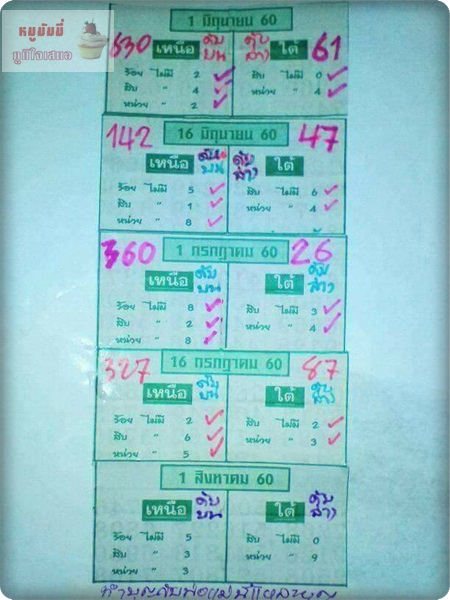 หมูมัมมี่
ภูมิใจเสนอ
1 มิถุนายน 60
530 เหนือ ดับบน ดับล่าง ใต้ 61
ร้อย ไม่มี 2 สิบ ไม่มี 0
สิบ " 4 หน่วย " 4
หน่วย " 2
142 16 มิถุนายน 60 47
เหนือ ดับบน ดับล่าง ใต้
ร้อย ไม่มี 5 สิบ ไม่มี 6
สิบ " 1 หน่วย " 4
หน่วย " 8
360 1 กรกฎาคม 60 26
เหนือ ดับบน ใต้ ดับล่าง
ร้อย ไม่มี 8 สิบ ไม่มี 3
สิบ " 2 หน่วย " 4
หน่วย " 8
327 16 กรกฎาคม 60 87
เหนือ ดับบน ใต้ ดับล่าง
ร้อย ไม่มี 2 สิบ ไม่มี 2
สิบ " 6 หน่วย " 3
หน่วย " 5
1 สิงหาคม 60
เหนือ ดับบน ใต้ ดับล่าง
ร้อย ไม่มี 5 สิบ ไม่มี 0
สิบ " 3 หน่วย " 9
หน่วย " 3